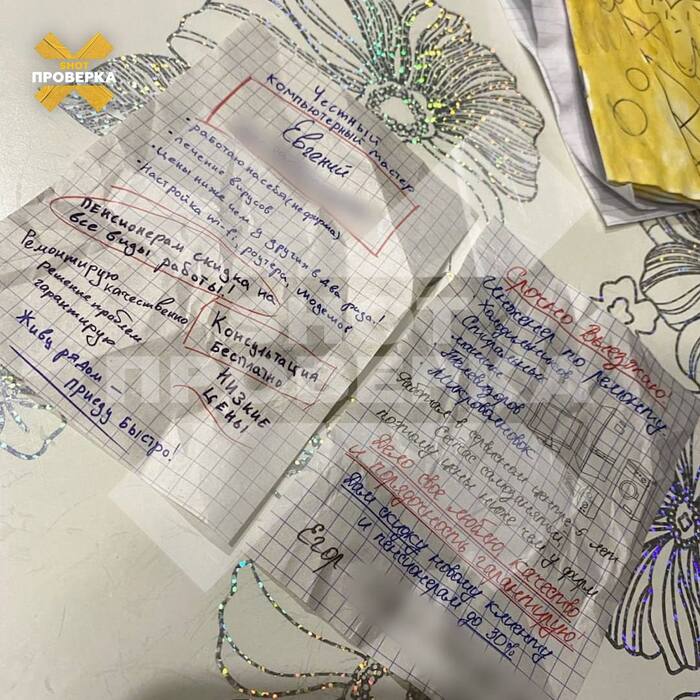 SHOT
ПРОВЕРКА
Честный
компьютерный мастер
Евгений
• работаю на себя (не фирма)
• лечение вирусов
• Цены ниже чем у других в два раза!
• Настройка wi-fi, роутера, модемов
Пенсионерам скидка на
все виды работы!
Ремонтирую качественно
решение проблем
гарантирую
Консультация
Бесплатно
Низкие
цены
Живу рядом –
приеду быстро!
Срочно выезжаю
Инженер по ремонту
Холодильников
Стиральных
машин
Телевизоров
Микроволновок
Работал в сервисном центре 5 лет
Сейчас самозанятый
поэтому цены ниже чем у фирм
Дело свое люблю, качество
и порядочность гарантирую!
Дам скидку новому клиенту
и пенсионерам до 30%
Егор
ПРОВЕРКА